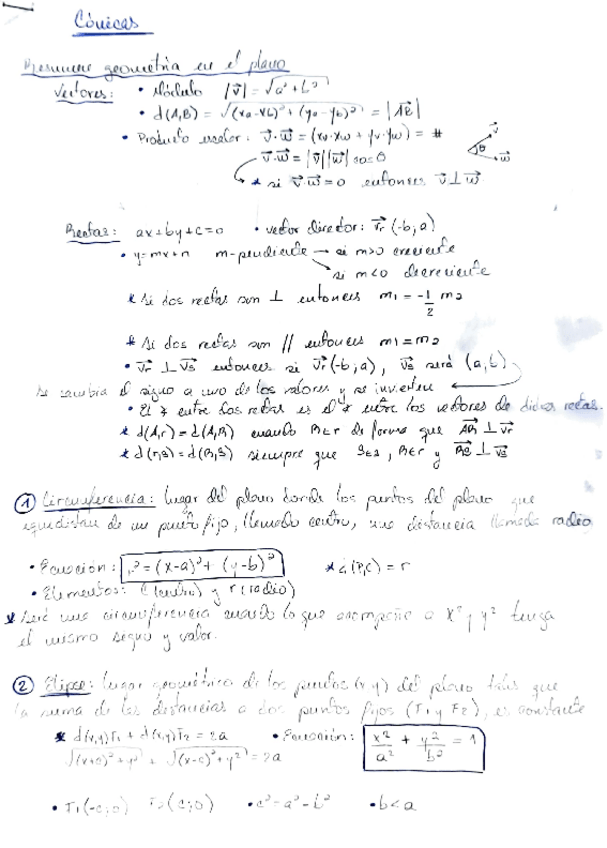 Cónicas
Resumen geometría en el plano
Vectores: • Módulo |v⃗| = √(a² + b²)
• d(A,B) = √((xa-xb)² + (ya-yb)²) = |AB⃗|
• Producto escalar: v⃗·w⃗ = (xv·xw + yv·yw) = #
v⃗·w⃗ = |v⃗||w⃗| cos θ
* si v⃗·w⃗ = 0 entonces v⃗ ⊥ w⃗
v⃗
θ
w⃗
Rectas: ax+by+c=0 • vector director: v⃗r (-b, a)
• y=mx+n m-pendiente → si m>0 creciente
si m<0 decreciente
* Si dos rectas son ⊥ entonces m₁ = -1/2 m₂
* Si dos rectas son // entonces m₁=m₂
• v⃗r ⊥ v⃗s entonces si v⃗r(-b,a), v⃗s será (a,b)
Se cambia el signo a uno de los valores y se invierten
• El ∡ entre dos rectas es el ∡ entre los vectores de dichas rectas.
* d(A,r) = d(A,B) cuando B∈r de forma que AB⃗ ⊥ v⃗r
* d(r,s) = d(R,S) siempre que S∈s, R∈r y RS⃗ ⊥ v⃗s
① Circunferencia: lugar del plano donde los puntos del plano que
equidistan de un punto fijo, llamado centro, una distancia llamada radio
• Ecuación: r² = (x-a)² + (y-b)² * d(P,C) = r
• Elementos: C (centro) y r (radio)
* Será una circunferencia cuando lo que acompañe a x² y y² tenga
el mismo signo y valor.
② Elipse: lugar geométrico de los puntos (x,y) del plano tales que
la suma de las distancias a dos puntos fijos (F₁ y F₂), es constante
* d(x,y)F₁ + d(x,y)F₂ = 2a • Ecuación: x²/a² + y²/b² = 1
√((x+c)²+y²) + √((x-c)²+y²) = 2a
• F₁(-c,0) F₂(c,0) • c² = a² - b² • b<a